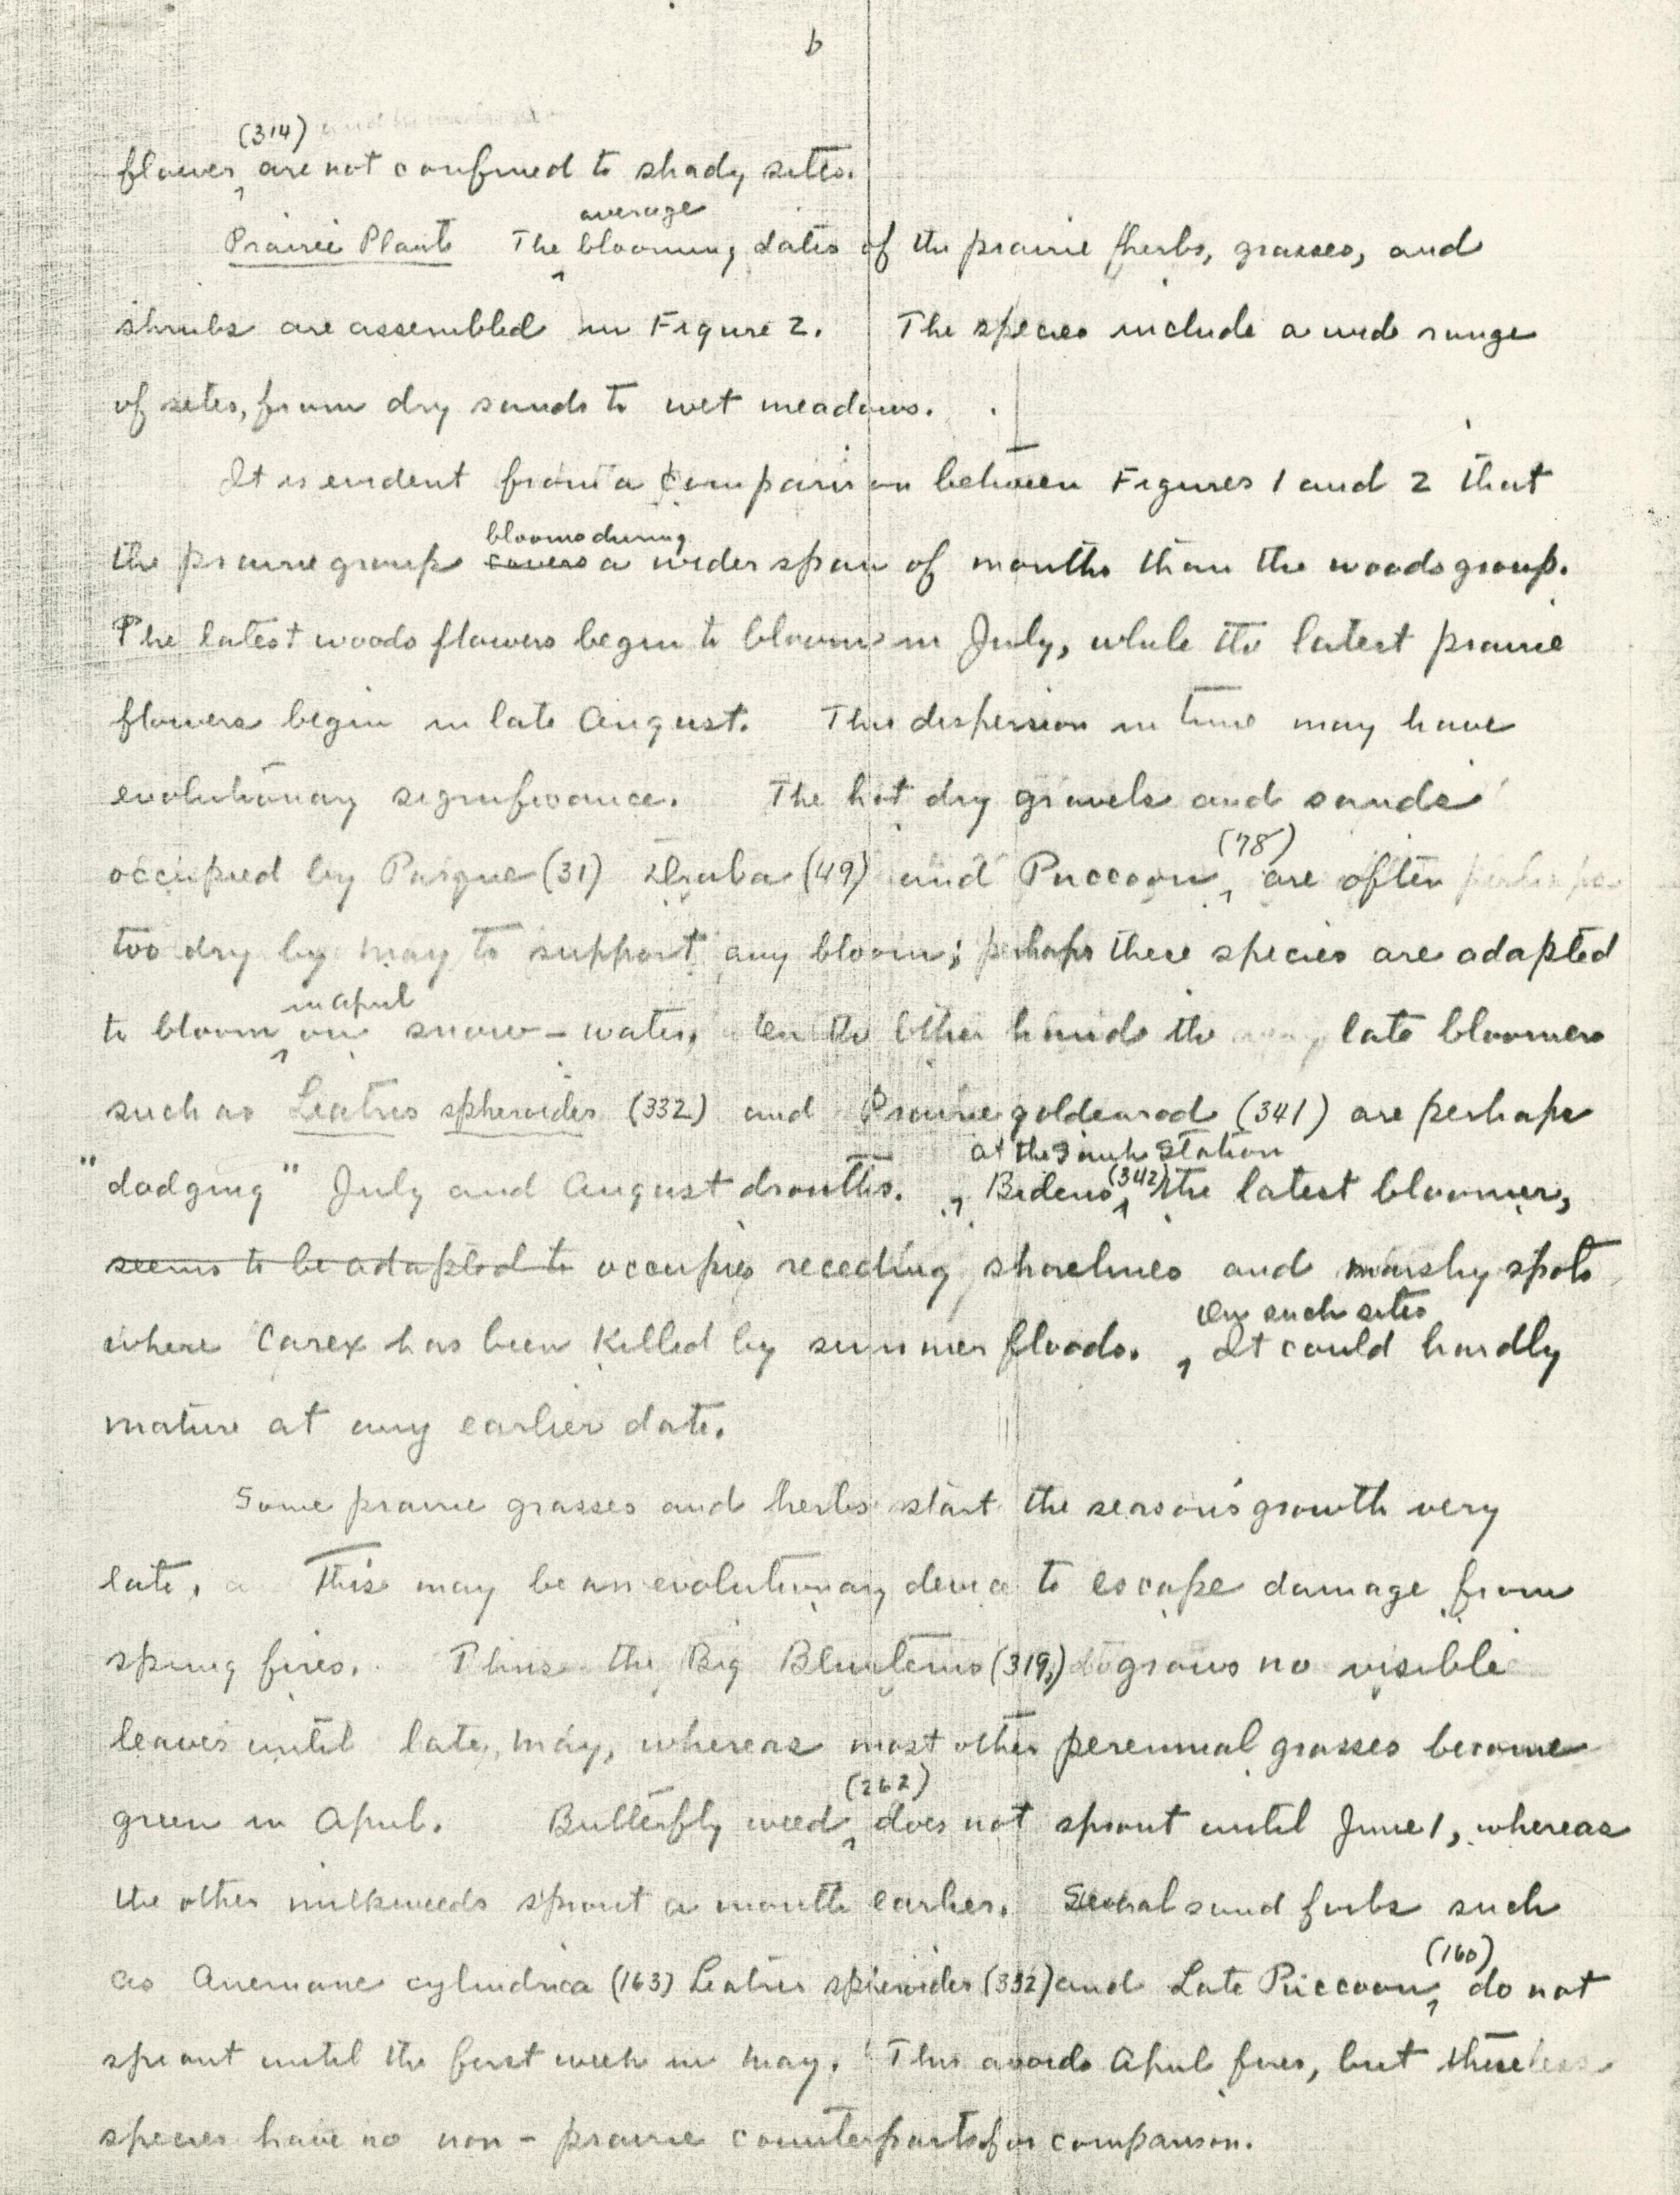 6
(314)
flower are not confined to shady sites.
average
Prairie Plants The blooming dates of the prairie herbs, grasses, and
shrubs are assembled in Figure 2. The species include a wide range
of sites, from dry sands to wet meadows.
It is evident from a comparison between Figures 1 and 2 that
blooms during
the prairie group covers a wider span of months than the woods group.
The latest woods flowers begin to bloom in July, while the latest prairie
flowers begin in late August. This dispersion in time may have
evolutionary significance. The hot dry gravels and sands
(78)
occupied by Pasque (31) Draba (49) and Puccoon are often perhaps
too dry by May to support any bloom; perhaps these species are adapted
in April
to bloom on snow-water. On the other hand the late bloomers
such as Liatris spheroidea (332) and Prairie goldenrod (341) are perhaps
at the Sauk Station
"dodging" July and August drouths. Bidens (342) the latest bloomer,
seems to be adapted to occupies receding shorelines and marshy spots
On such sites
where Carex has been killed by summer floods. It could hardly
mature at any earlier date.
Some prairie grasses and herbs start the season's growth very
late. This may be an evolutionary device to escape damage from
spring fires. Thus the Big Bluestem (319) grows no visible
leaves until late May, whereas most other perennial grasses become
(262)
green in April. Butterfly weed does not sprout until June 1, whereas
the other milkweeds sprout a month earlier. Several sand forbs such
(160)
as Anemone cylindrica (163) Liatris spheroidea (332) and Late Puccoon do not
sprout until the first week in May. This avoids April fires, but these
species have no non-prairie counterparts for comparison.